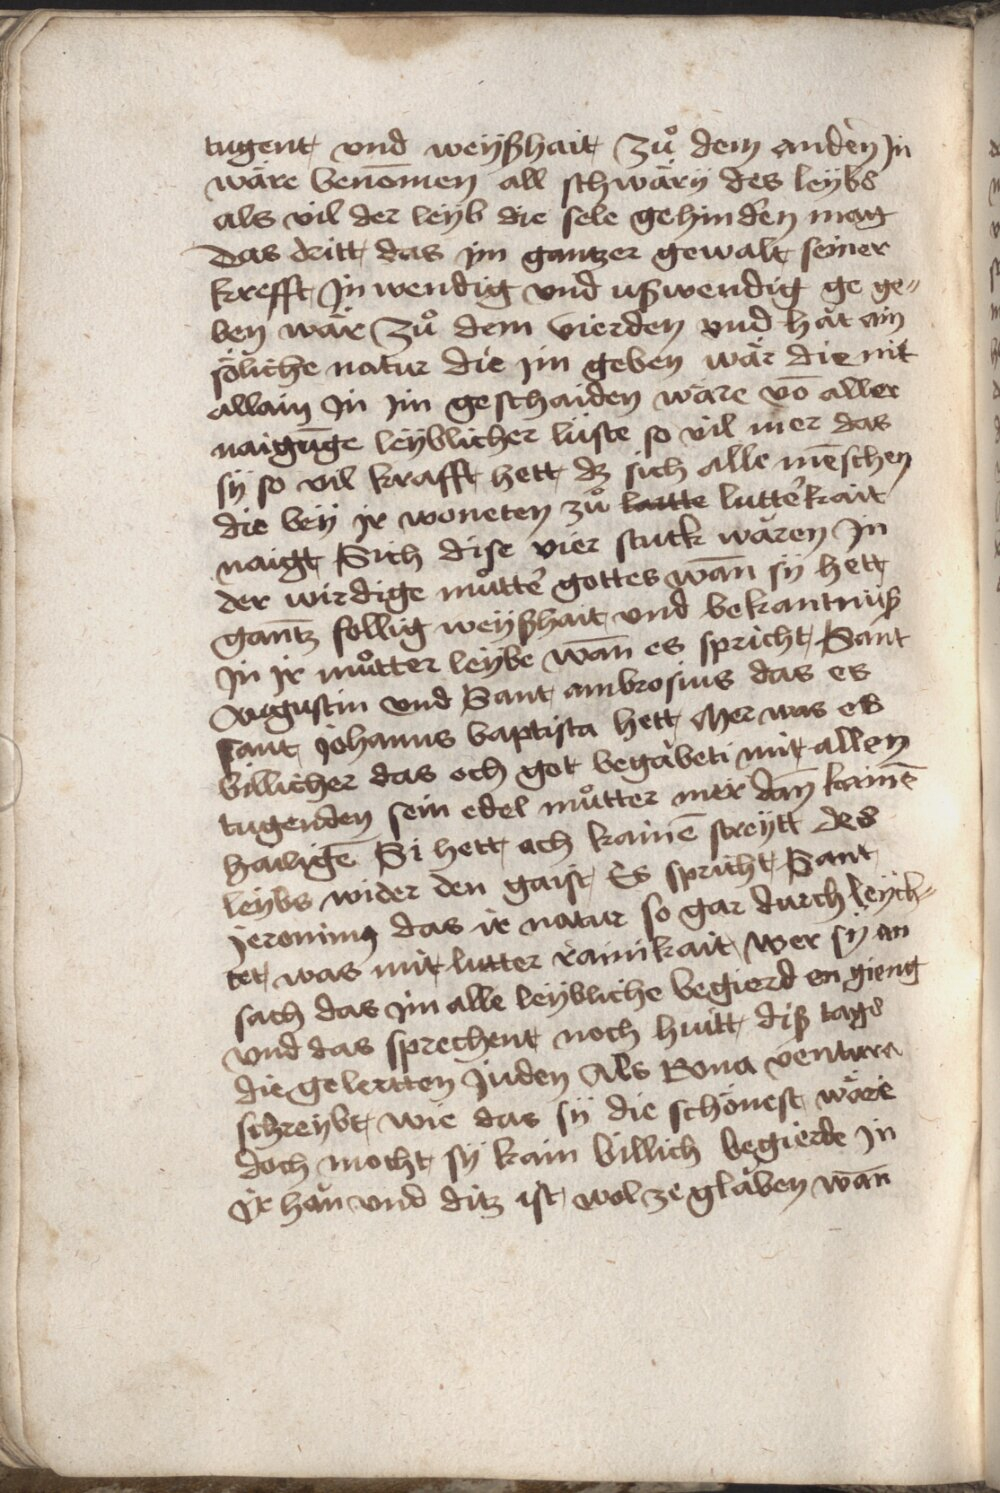 tugent und weyßhait Zuͦ dem andeꝛn Jn
wäre benōmen all schwäry des leybs
als vil der leyb die sele gehindeꝛn mag
Das dritt das im gantzer gewalt seiner
krefft Jn wendig und ußwendig ge ge⸗
ben wär Zuͦ dem vierden und hät ain
söliche natur die im geben wär die nit
allain in im geschaiden wäre vō aller
naigūge leyblicher lüste so vil mer das
sÿ so vil krafft hett dz sich alle mēschen
die bey jr woneten zuͦ lautte lutteꝛkait
naigt Sich dise vier stuck waren Jn
der wirdige muͦtteꝛ gottes wān sÿ hett
gantz follig weyßhait und bekantnuß
Jn Jr muͦtter leybe wān es spricht Sant
Augustin und Sant ambrosius das es
sant Johanns baptista hett Mer was es
billicher das och got begabeti mit allen
tugenden sein edel muͦtter mer dan̄ kainē
hailigē Si hett ach kainē streytt des
leybs wider den gaist Es spricht Sant
Jeronimꝰ das ir natur so gar durch leych⸗
tet was mit lutter rainikait wer sÿ an
sach das im alle leybliche begierd en gieng
und das sprechent noch huitt diß tags
die gelertten Juden Als Bona ventura
schreybt wie das sÿ die schönest wäre
doch mocht sÿ kain billich begierde in
Jr han und ditz ist wol ze glaͮben wān